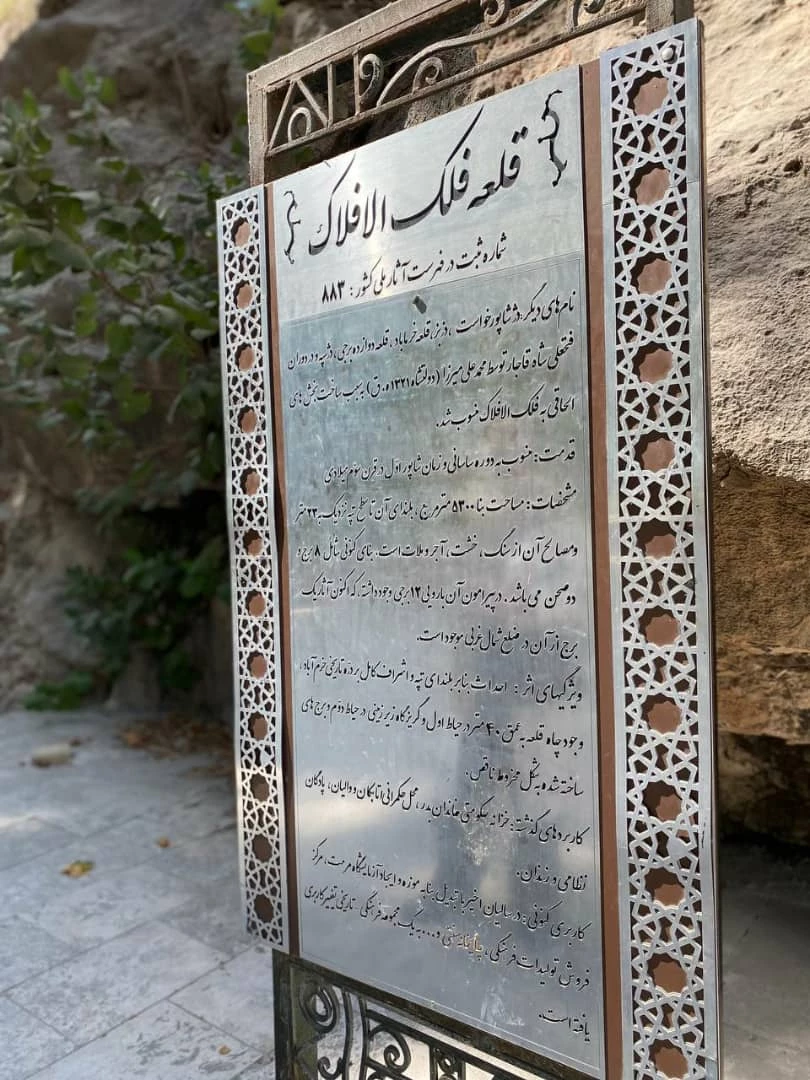 قلعه فلک الافلاک
شماره ثبت در فهرست آثار ملی کشور : ۸۸۳
نام های دیگر : دژ شاپور خواست ، دزبز ، قلعه خرم آباد ، قلعه دوازده برجی ، دژ سپه و در دوران
فتحعلی شاه قاجار توسط محمد علی میرزا (دولتشاه ۱۲۲۱ ه.ق) به سبب ساخت بخش های
الحاقی به فلک الافلاک منسوب شد.
قدمت : منسوب به دوره ساسانی و زمان شاپور اول در قرن سوم میلادی
مشخصات : مساحت بنا ۵۳۰۰ متر مربع ، بلندای آن تا سطح تپه نزدیک به ۲۳ متر
و مصالح آن از سنگ ، خشت ، آجر و ملات است. بنای کنونی شامل ۸ برج و
دو صحن می باشد . در پیرامون آن بارویی ۱۲ برجی وجود داشته، که اکنون آثار یک
برج از آن در ضلع شمال غربی موجود است.
ویژگیهای اثر : احداث بنا بر بلندای تپه و اشراف کامل بر دره تاریخی خرم آباد ،
وجود چاه قلعه به عمق ۴۰ متر در حیاط اول و گریزگاه زیر زمینی در حیاط دوم و برج های
ساخته شده به شکل مخروط ناقص .
کاربردهای گذشته : خزانه حکومتی خاندان بدر ، محل حکمرانی اتابکان و والیان ، پادگان
نظامی و زندان.
کاربری کنونی : در سالیان اخیر با تبدیل بنا به موزه و ایجاد آزمایشگاه مرمت ، مرکز
فروش تولیدات فرهنگی ، چایخانه سنتی و .... به یک مجموعه فرهنگی - تاریخی تغییر کاربری
یافته است.